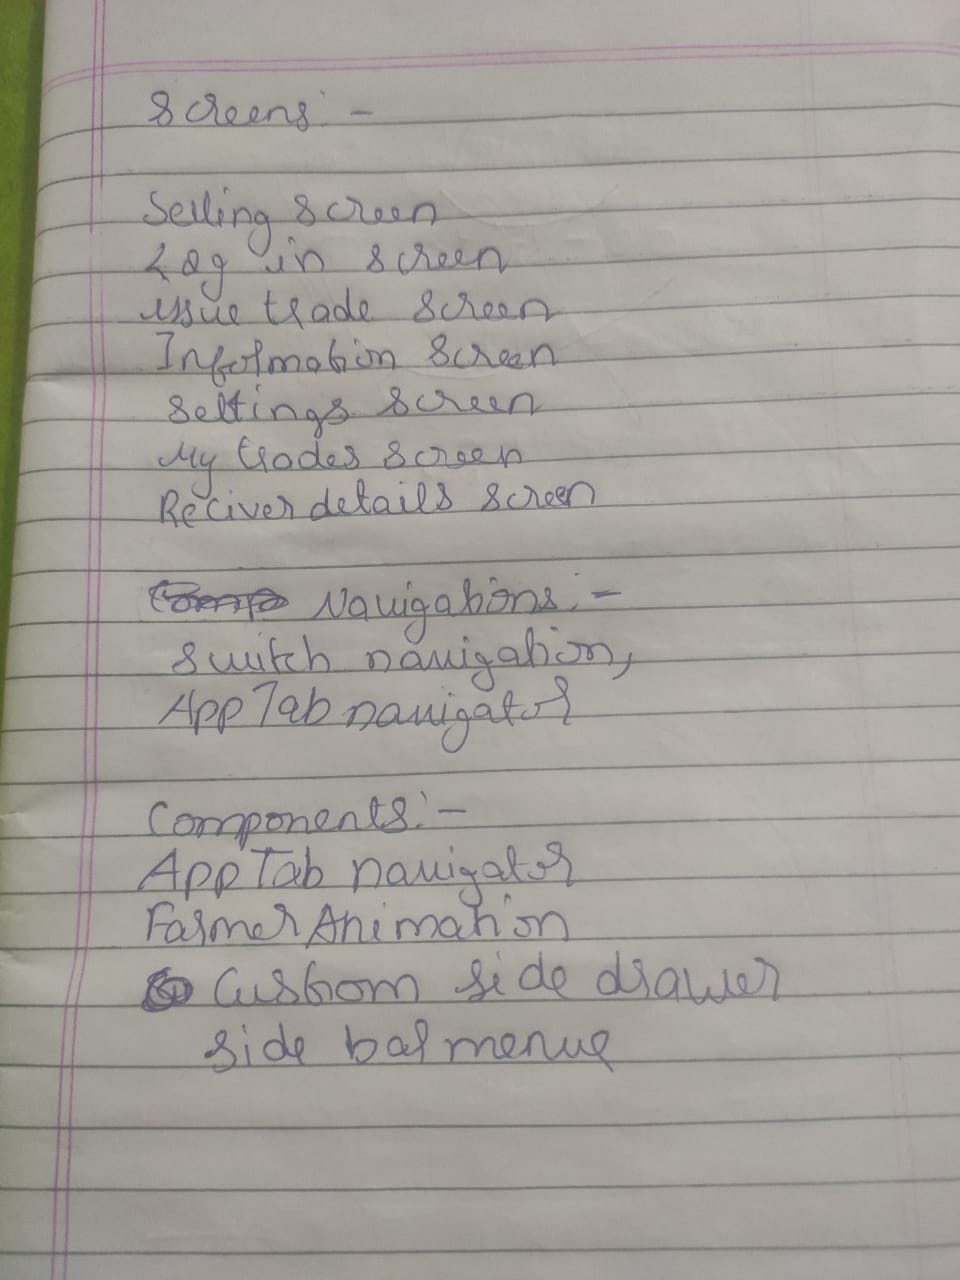 Screens:-
Selling screen
Log in screen
issue trade screen
Information screen
settings screen
My trades screen
Reciver details screen
Navigations:-
switch navigation,
App Tab navigator
Components:-
App Tab navigator
Farmer Animation
Custom side drawer
side bar menue